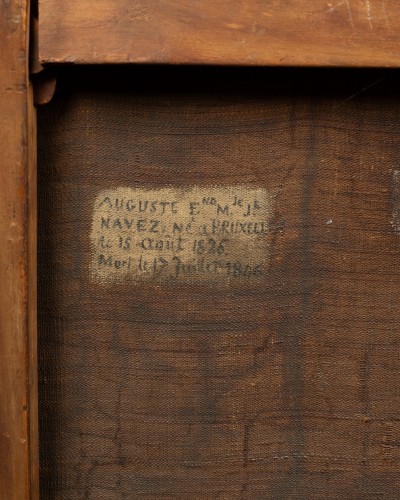 AUGUSTE E^ND M^IE J^H
NAVEZ, Né a BRUXELL
le 15 août 1836
Mort le 17 Juillet 1846